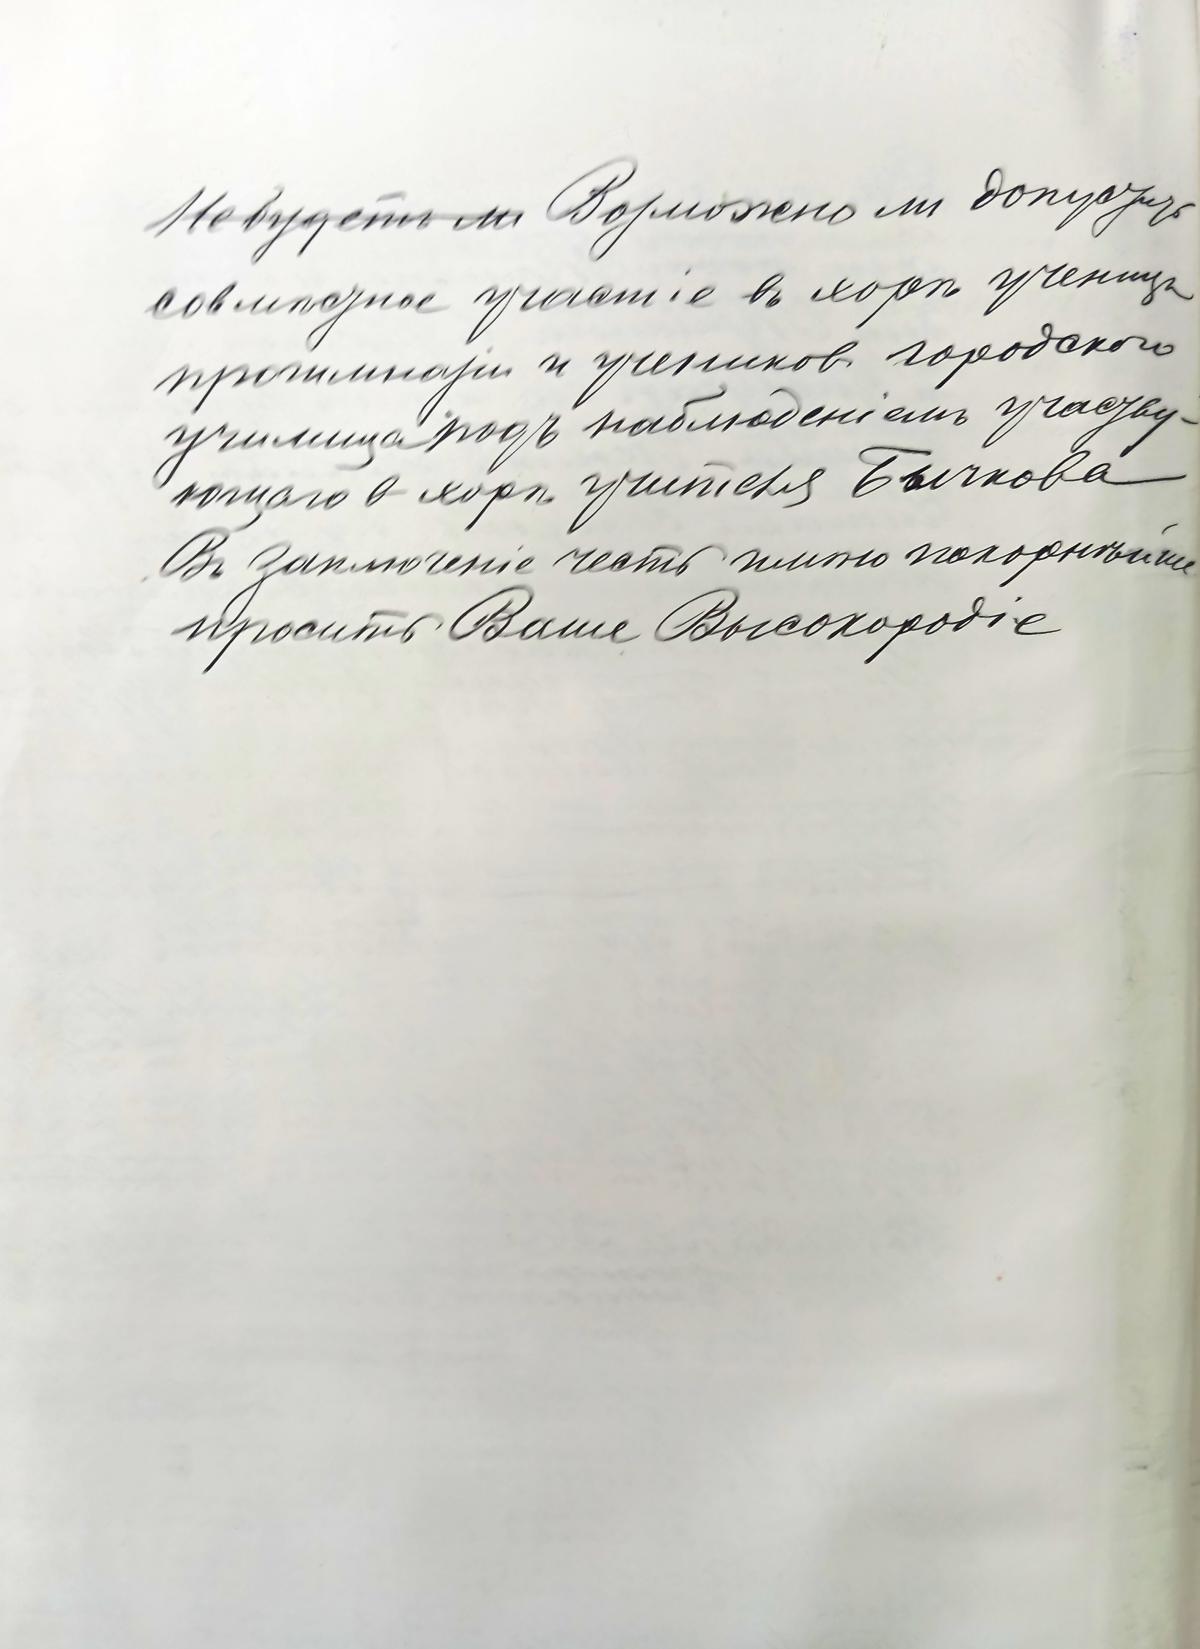 Небудетъ ли Возможно ли допустить
совмѣстное участіе въ хорѣ ученицъ
прогимназіи и учеников городского
училища подъ наблюденіемъ участву-
ющаго в хорѣ учителя Бычкова
Въ заключеніе честь имѣю покорнѣйше
просить Ваше Высокородіе